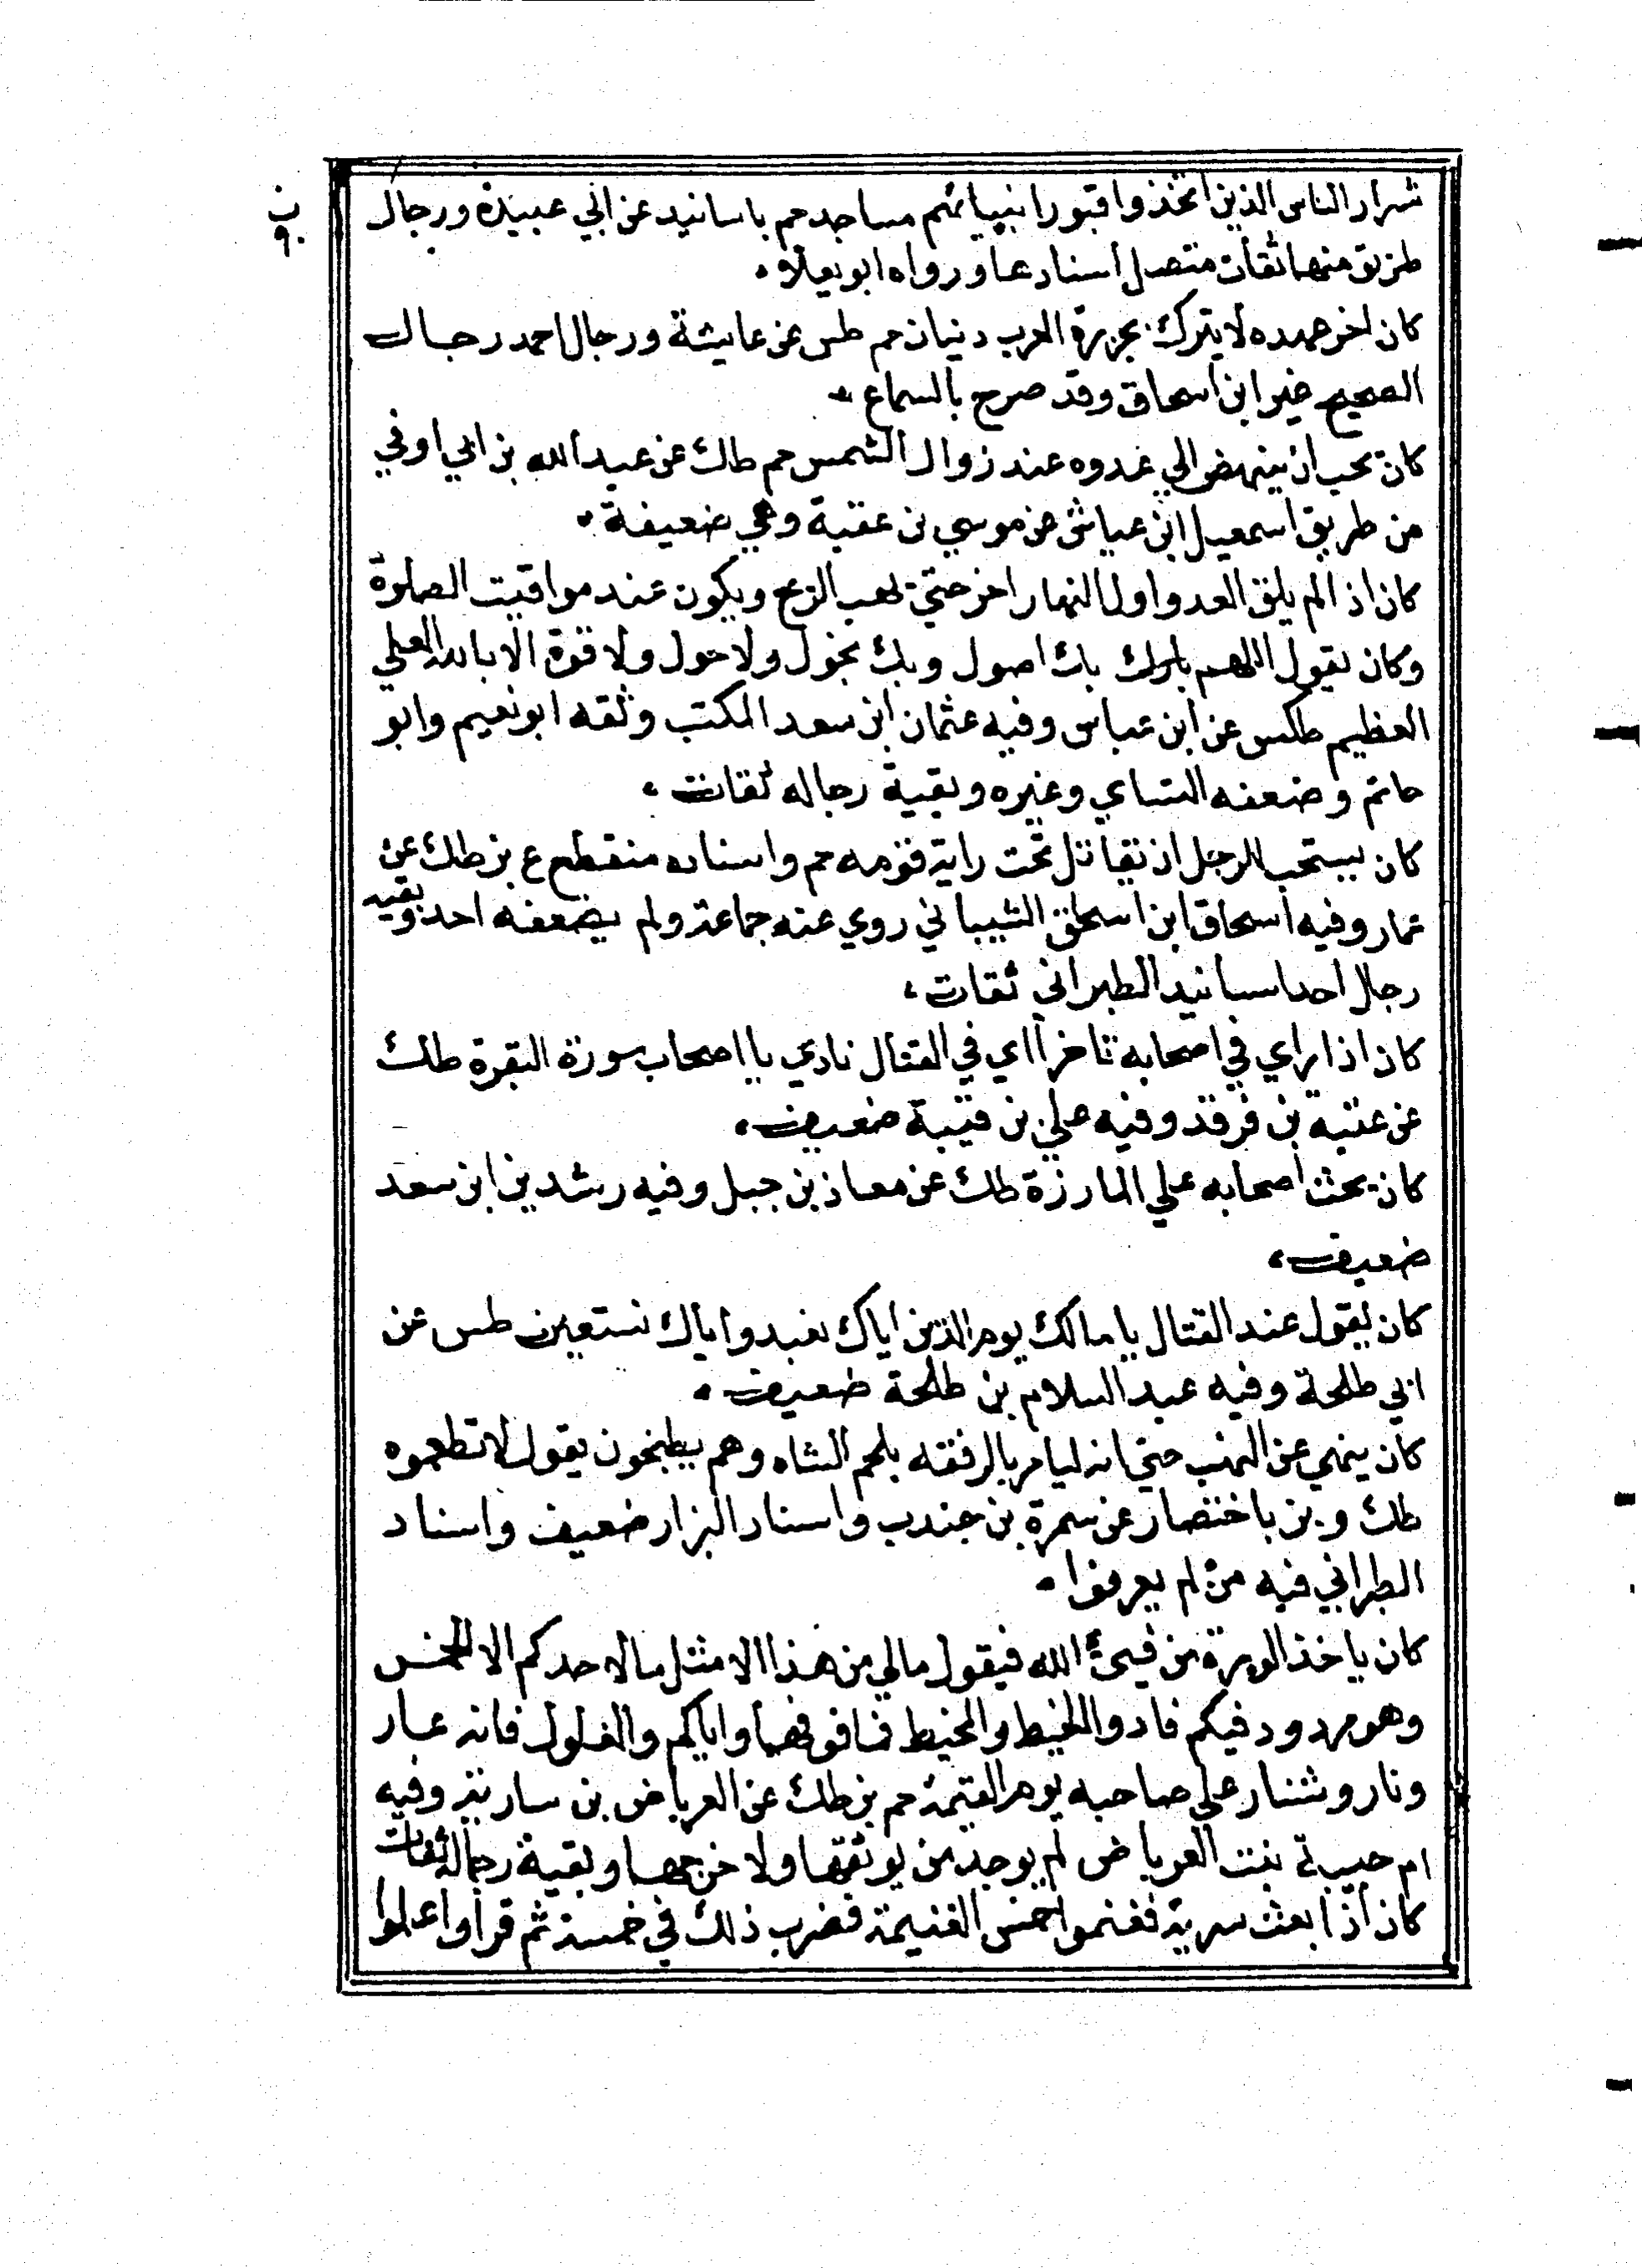 شرار الناس الذين اتخذوا قبور انبيائهم مساجد حم باسانيد عن ابي عبيدة ورجال
ب ٩٠
طريق منها ثقات متصل اسنادها ورواه ابو يعلا
كان اخر عهده لا يترك بجزيرة العرب دينان حم طس عن عايشة ورجال احمد رجال
الصحيح غير ابن اسحاق وقد صرح بالسماع
كان يحب ان ينهض الي عدوه عند زوال الشمس حم طك عن عبد الله بن ابي اوفي
من طريق اسمعيل ابن عياش عن موسي بن عقبة وهي ضعيفة
كان اذا لم يلق العدو اول النهار اخر حتي تهب الريح ويكون عند مواقيت الصلوة
وكان يقول اللهم بك اصول وبك نجول ولا حول ولا قوة الا بالله العلي
العظيم طكس عن ابن عباس وفيه عثمان ابن سعد المكتب وثقه ابو نعيم وابو
حاتم وضعفه النساي وغيره وبقية رجاله ثقات
كان يستحب للرجل ان يقاتل تحت راية قومه حم واسناده منقطع ع بز طك عن
عمار وفيه اسحاق ابن اسحق الشيباني روي عنه جماعة ولم يضعفه احد وبقية
رجال احد اسانيد الطبراني ثقات
كان اذا راي في اصحابه تاخرا اي في القتال نادي يا اصحاب سورة البقرة طك
عن عتبة بن فرقد وفيه علي بن قتيبة ضعيف
كان يحث اصحابه علي المبارزة طك عن معاذ بن جبل وفيه رشدين ابن سعد
ضعيف
كان يقول عند القتال يا مالك يوم الدين اياك نعبد واياك نستعين طس عن
ابي طلحة وفيه عبد السلام بن طلحة ضعيف
كان ينهي عن النهب حتي انه ليامر بالرفقه بلحم الشاه وهم يطبخون يقول لا تطعموه
طك وبز باختصار عن سمرة بن جندب واسناد البزار ضعيف واسناد
الطبراني فيه من لم يعرفوا
كان ياخذ الوبرة من فيئ الله فيقول مالي من هذا الا مثل ما لاحدكم الا الخمس
وهو مردود فيكم فادوا الخيط والمخيط فما فوقهما واياكم والغلول فانه عار
ونار وشنار علي صاحبه يوم القيمة حم بز طك عن العرباض بن سارية وفيه
ام حبيبة بنت العرباض لم يوجد من يوثقها ولا خرجها وبقية رجاله ثقات
كان اذا بعث سرية فغنموا خمس الغنيمة فضرب ذلك في خمسة ثم قرا واعلموا